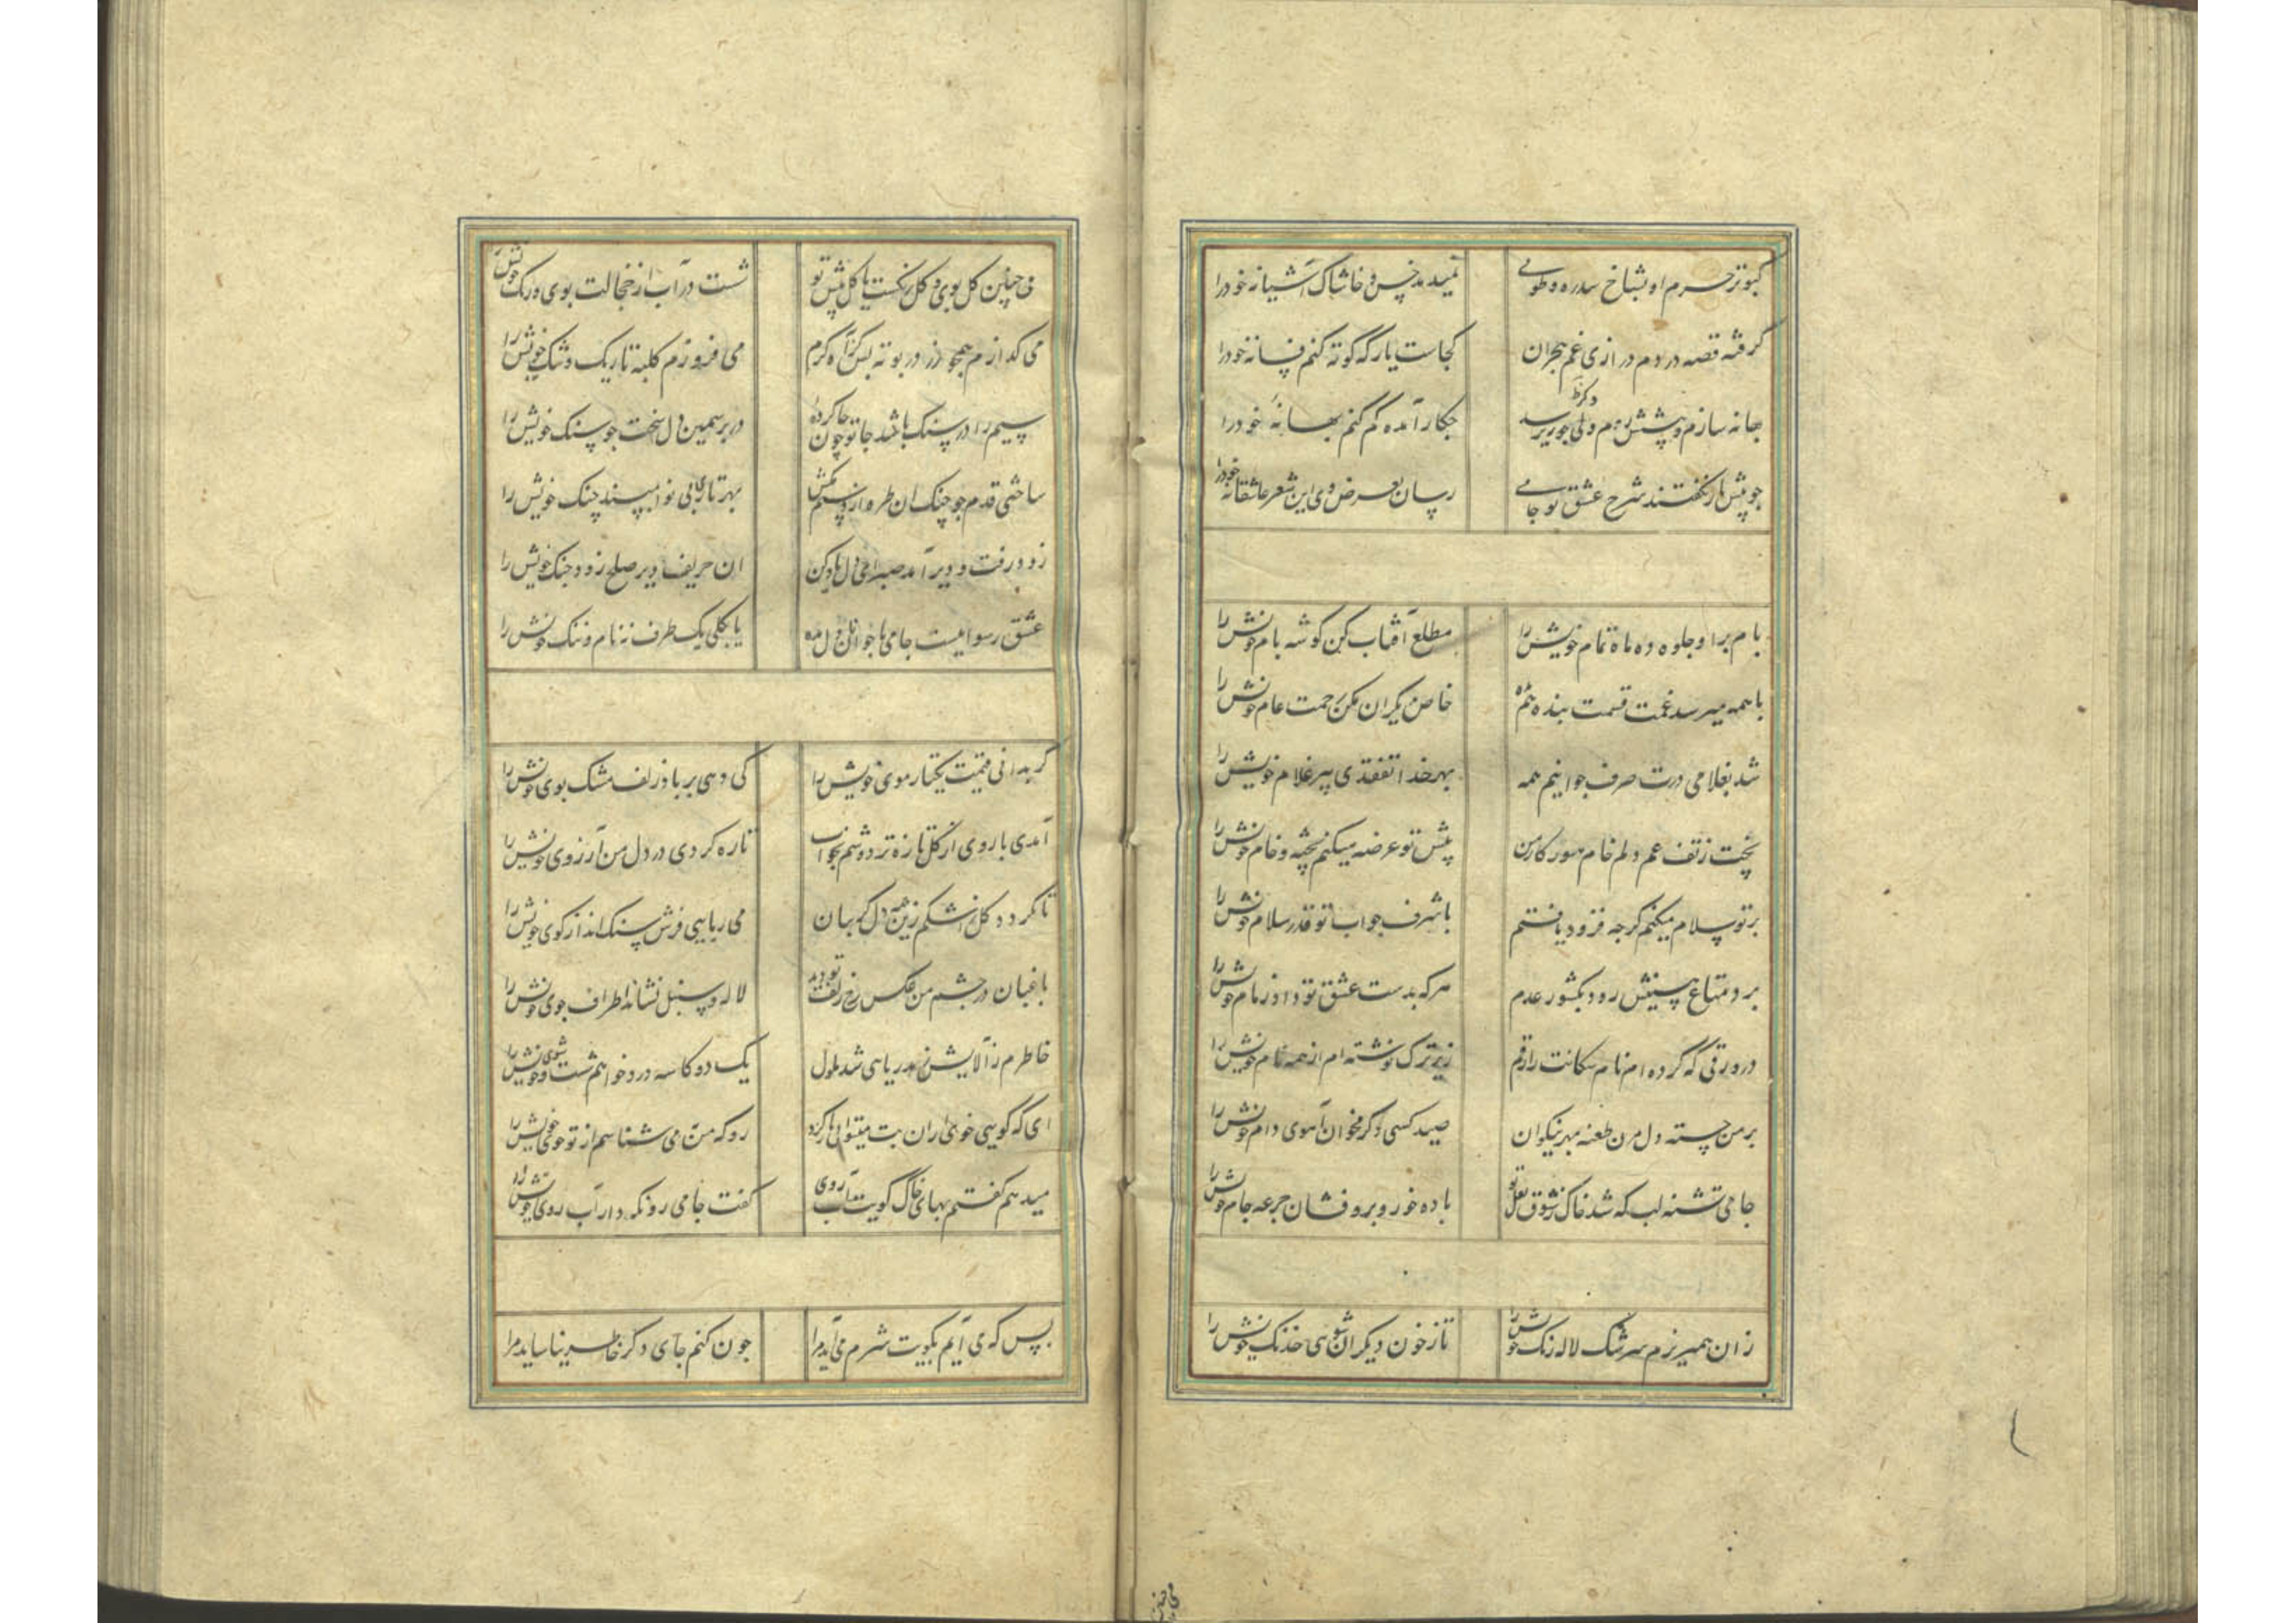 کبوتر حرم او بشاخ سدره و طوبی نمیدهد خس و خاشاک آشیانه خود را
گرفته قصه دردم درازی غم هجران کجاست یار که کوته کنم فسانه خود را
بهانه سازم و پیشش روم ولی چو بپرسد دگر چکار آمده گم کنم بهانه خود را
چو پیش یار نگفتند شرح عشق تو جامی رسان بعرض وی این شعر عاشقانه خود را
بام برا و جلوه ده ماه تمام خویش را مطلع آفتاب کن گوشه بام خویش را
با همه میرسد غمت قسمت بنده هم بده خاص دیگران مکن رحمت عام خویش را
شد بغلامی درت صرف جوانیم همه بهر خدا تفقدی پیر غلام خویش را
پخت ز تف غم دلم خام هنوز کار من پیش تو عرضه میکنم پخته و خام خویش را
بر تو سلام میکنم گرچه فزود یافتم با شرف جواب تو قدر سلام خویش را
برد متاع هستیش رود بکشور عدم هر که بدست عشق تو داد زمام خویش را
در ورقی که کرده ام نام سگانت را رقم زیرترک نوشته ام از همه نام خویش را
بر من خسته دل مزن طعنه بمهر نیکوان صید کسی دگر مخوان آهوی دام خویش را
جامی تشنه لب که شد خاک ز شوق لعل تو باده خور و برو فشان جرعه جام خویش را
زان همیریزم سرشک لاله رنگ خویش را تا ز خون دیگران شویی خدنگ خویش را
نی چنین گل بوی و گل رنگست یا گل پیش تو شست در آب از خجالت بوی و رنگ خویش را
می گدازم همچو زر در بوته بس کز آه گرم می فروزم کلبه تاریک و تنگ خویش را
سیم را در سنگ باشد جا تو چون جا کرده در بر سیمین دل سخت چو سنگ خویش را
ساختی قدم چو چنگ آن طره از دستم مکش بهر تاری بی نوا مپسند چنگ خویش را
زود رفت و دیر آمد صبر ای دل یاد کن آن حریف دیر صلح زود جنگ خویش را
عشق رسواییست جامی یا جوانان دل مده یا بکلی یک طرف نه نام و ننگ خویش را
گر بدانی قیمت یکتار موی خویش را کی دهی بر باد زلف مشک بوی خویش را
آمدی با روی از گل تازه تر دوشم بخواب تازه کردی در دل من آرزوی خویش را
تا نگردد گل ز اشکم زین دل که بسان می ربایی فرش سنگ انداز کوی خویش را
باغبان در چشم من عکس رخ و زلف تو دید لاله و سنبل نشاند اطراف جوی خویش را
خاطرم ز آلایش زهد ریایی شد ملول یک دو کاسه درد خواهم شست و شوی خویش را
ای که گویی خوی ازان بت میتوانی باز کرد رو که من می شناسم از تو خوی خویش را
میدهم گفتم بهای خاک کویت آب روی گفت جامی رو نگه دار آب روی خویش را
بس که می آیم بکویت شرم می آید مرا چون کنم جای دگر خاطر نیاساید مرا